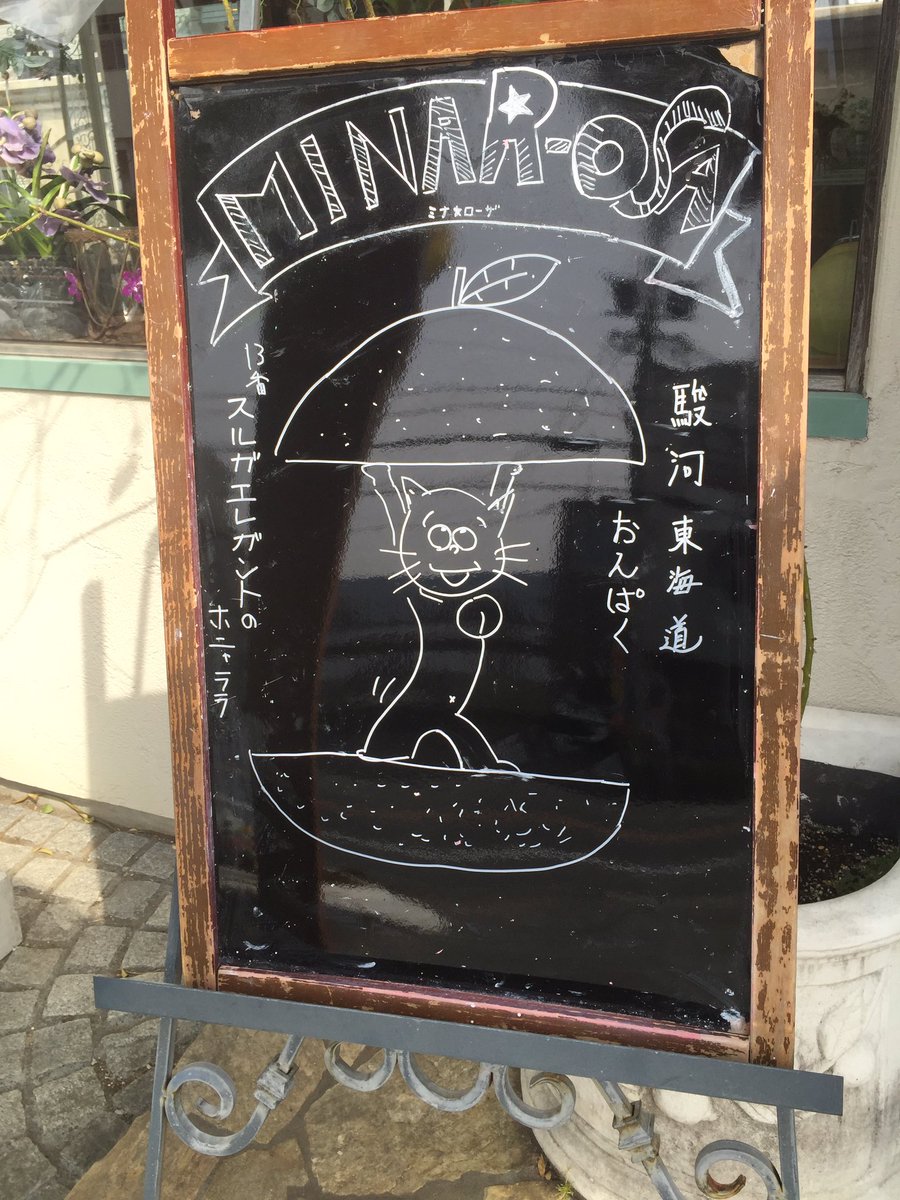 MINAR-OSA
ミナ★ローザ
駿河 東海道
おんぱく
13番 スルガエレガントの
ホニャララ